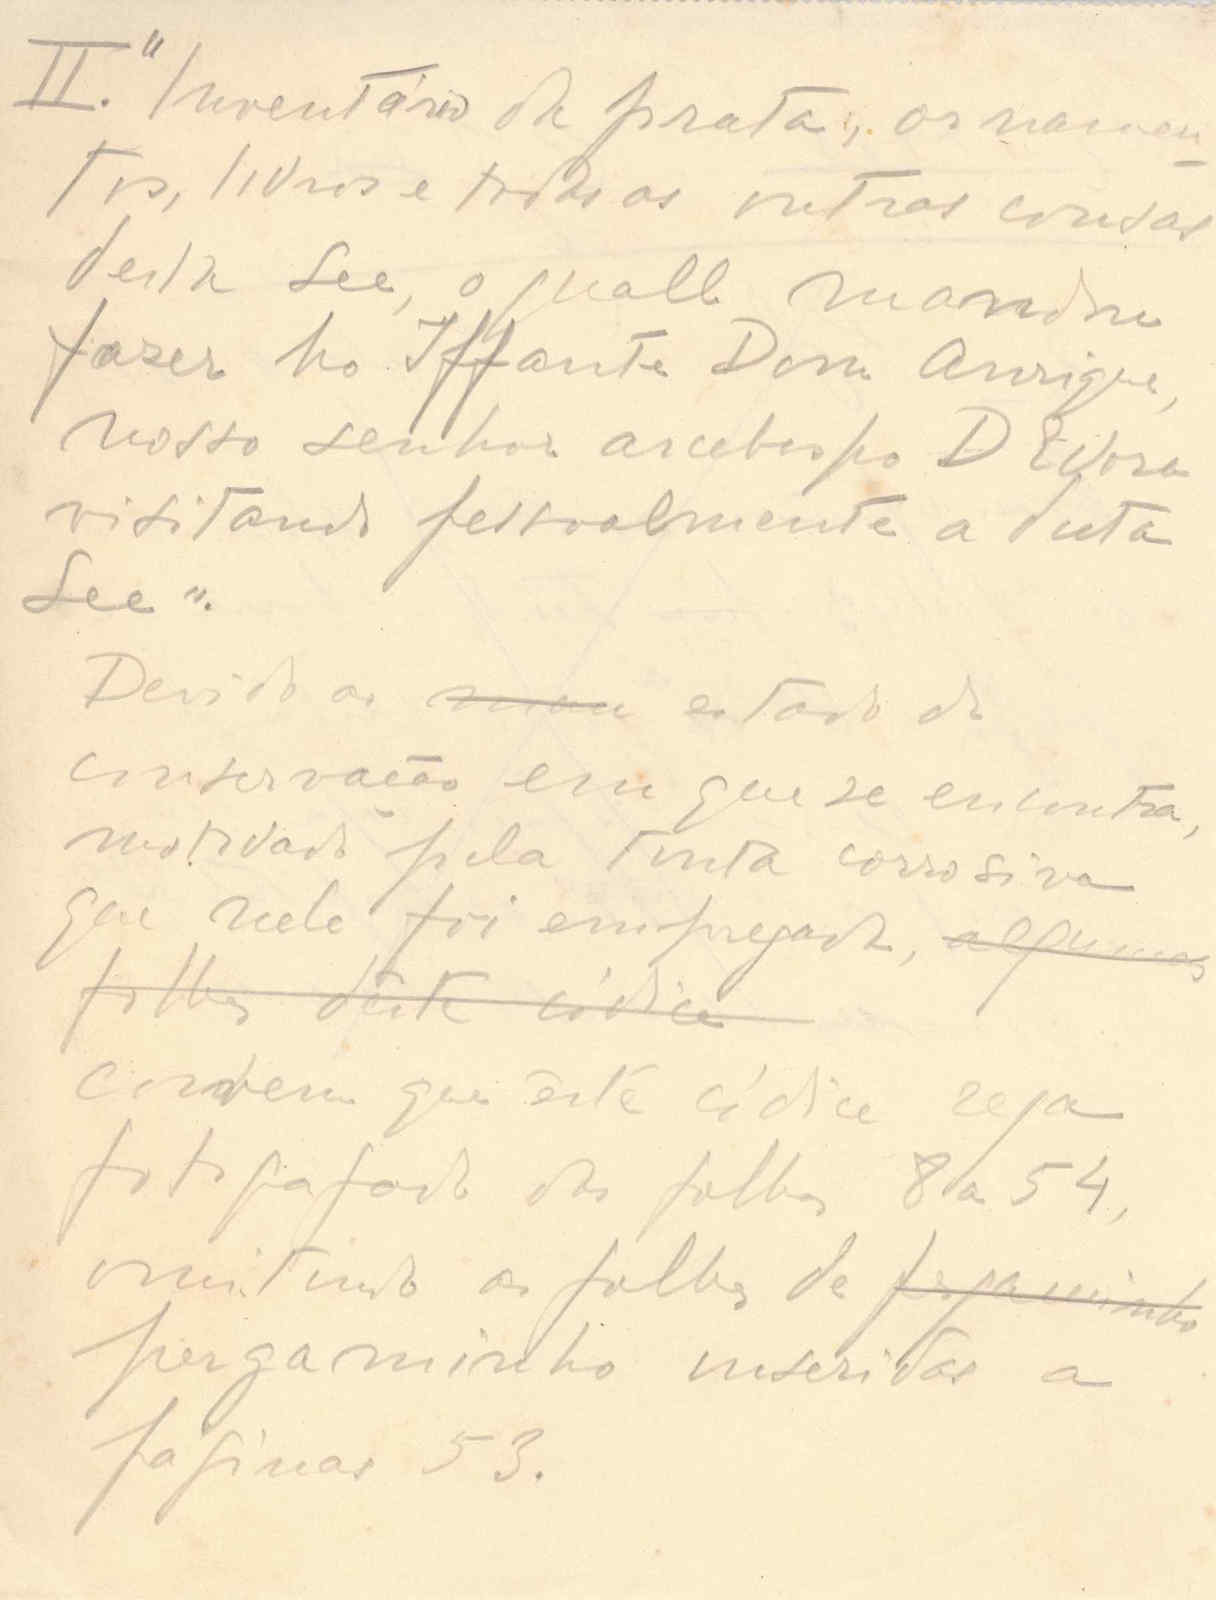 II. "Inventário da prata, ornamen
tos, livros e todas as outras cousas
desta See, o quall mandou
fazer ho Iffante Dom Anrique,
nosso senhor arcebispo D Evora
visitando pessoalmente a dita
See".
Devido ao mau estado de
conservação em que se encontra,
motivado pela tinta corrosiva
que nele foi empregada, algumas
folhas deste códice
convem que êste códice seja
fotografado das folhas 8 a 54,
omitindo as folhas de pergaminho
pergaminho inseridas a
páginas 53.